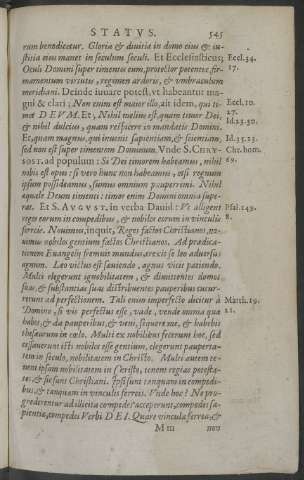 STATVS. 545
rum benedicetur. Gloria & diuitiæ in domo eius & iu-
stitia eius manet in sæculum sæculi. Et Ecclesiasticus; Eccl.34.
Oculi Domini super timentes eum, protector potentiæ, fir- 17.
mamentum virtutis, tegimen ardoris, & vmbraculum
meridiani. Deinde iuuare potest, vt habeantur ma-
gni & clari; Non enim est maior illo, ait idem, qui ti- Eccl.10.
met DEVM. Et, Nihil melius est, quam timor Dei, 27.
& nihil dulcius, quam respicere in mandatis Domini. Id.23.30.
Et, quam magnus, qui inuenit sapientiam, & scientiam, Id.25.13.
sed non est super timentem Dominum. Vnde S. CHRY- Chr. hom.
SOST. ad populum: Si Dei timorem habeamus, nihil 69.
nobis est opus: si vero hunc non habeamus, etsi regnum
ipsum possideamus, sumus omnium pauperrimi. Nihil
æquale Deum timenti: timor enim Domini omnia supe-
rat. Et S. AVGVST. in verba Dauid: Vt alligent Psal.149.
reges eorum in compedibus, & nobiles eorum in vinculis 8.
ferreis. Nouimus, inquit, Reges factos Christianos, no-
uimus nobiles gentium factos Christianos. Ad prædica-
tionem Euangelij fremuit mundus, irrexit se leo aduersus
agnum. Leo victus est sæuiendo, agnus vicit patiendo.
Multi elegerunt ignobilitatem, & dimittentes domos
suas, & substantias suas distribuentes pauperibus cucur-
rerunt ad perfectionem. Tali enim imperfecto dicitur à Matth.19.
Domino, Si vis perfectus esse, vade, vende omnia quæ 21.
habes, & da pauperibus, & veni, sequere me, & habebis
thesaurum in cœlo. Multi ex nobilibus fecerunt hoc, sed
cessauerunt isti nobiles esse gentium, elegerunt pauperta-
tem in sæculo, nobilitatem in Christo. Multi autem te-
nent ipsam nobilitatem in sæculo, tenent regias potesta-
tes, & sic sunt Christiani. Ipsi sunt tanquam in compedi-
bus, & tanquam in vinculis ferreis. Vnde hoc? Ne pro-
grederentur ad illicita compedes acceperunt, compedes sa-
pientiæ, compedes Verbi DEI. Quare vincula ferrea, &
M m non